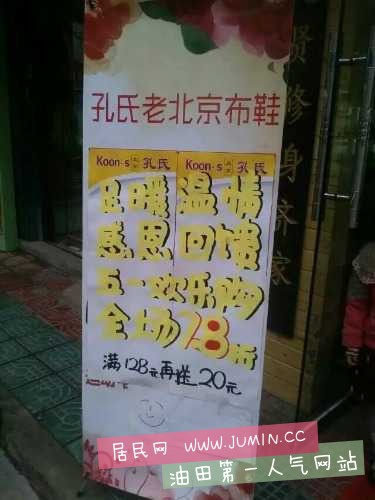 孔氏老北京布鞋
Koon-s 孔氏 Koon-s 孔氏
暖 温情
感恩回馈
五一欢乐购
全场7.8折
满128元再送20元
贤修身齐家
居民网 WWW.JUMIN.CC
油田第一人气网站